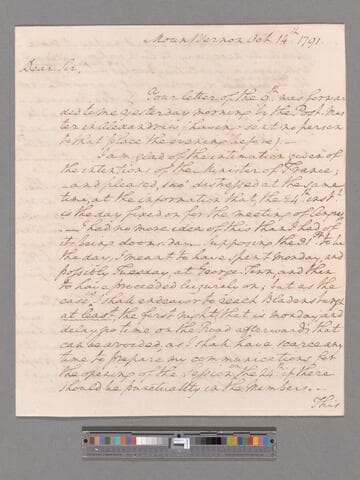 Mount Vernon Oct. 14th 1791.
Dear Sir,
Your letter of the 9th. was forwar
ded to me yesterday morning by the Post Mas
ter in Alexandria (having sent no person
to that place the evening before).—
I am glad of the intimation given of
the intentions of the Minister of France;
—and pleased, tho' distressed at the same
time, at the information that the 24th. inst.
is the day fixed on for the meeting of Congress
—I had no more idea of this than I had of
its being doomsday. Supposing the 31st. to be
the day, I meant to have spent Monday, and
possibly Tuesday, at George Town, and then
to have proceeded leizurely on; but as the
case is I shall endeavor to reach Bladensburgh
at least the first night, that is monday and
delay no time on the Road afterwards, that
can be avoided, as I shall have scarce any
time to prepare my communications for
the opening of the session, the 24th. if there
should be punctuality in the Members.—
This